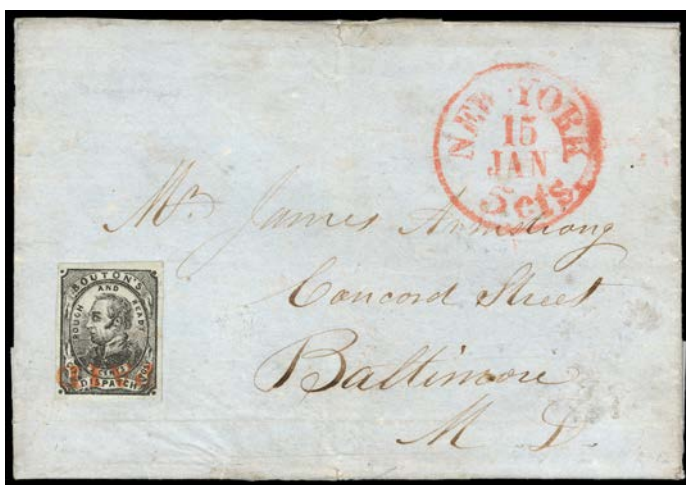 NEW YORK
15
JAN
5 cts.
Mr. James Armstrong
Concord Street
Baltimore
M D.
BOUTON'S
ROUGH AND READY
CITY
DISPATCH